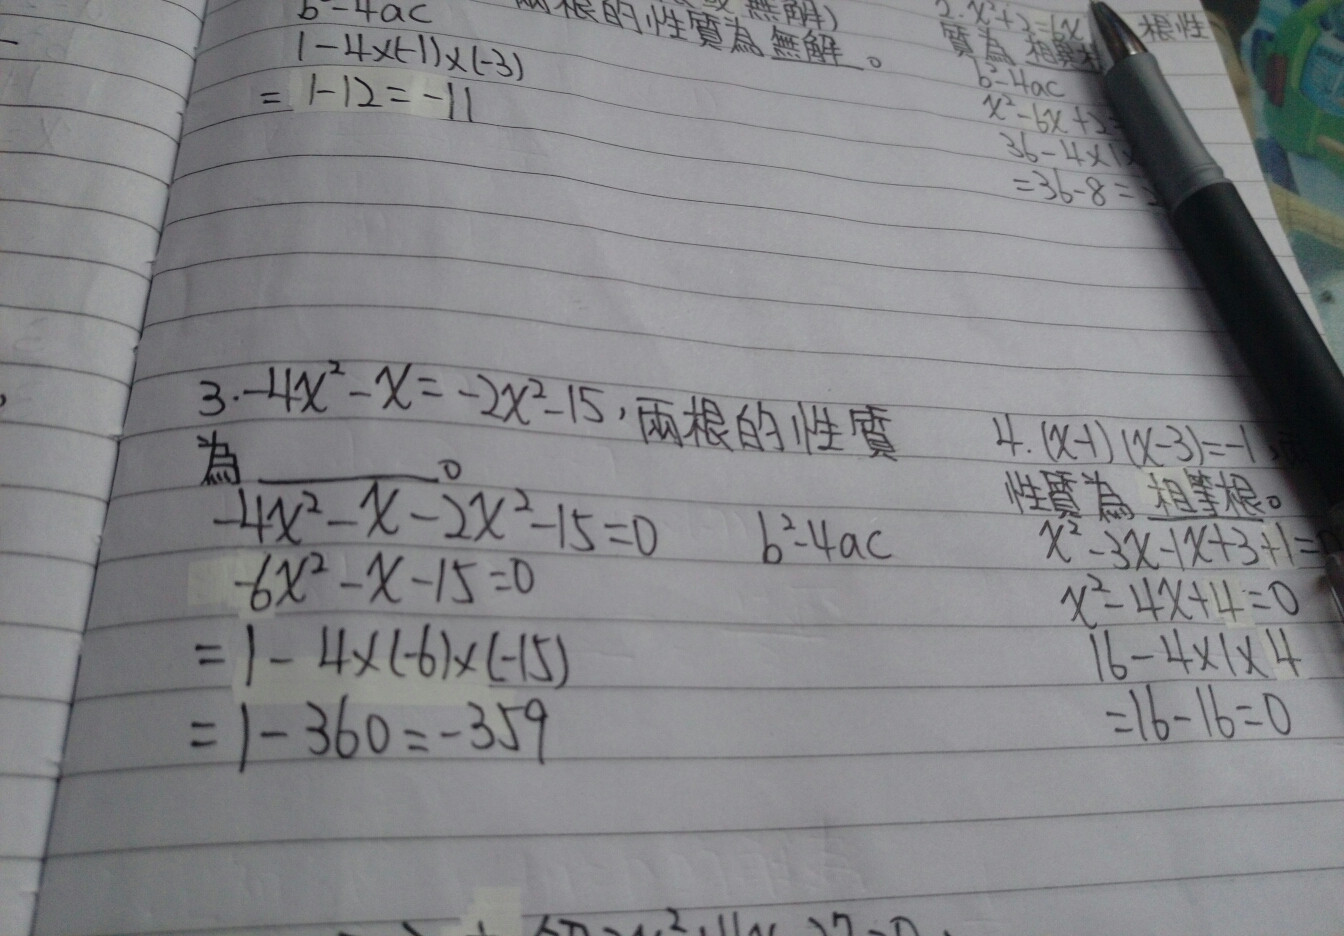 b²-4ac
兩根的性質為 無解 。
1-4×(-1)×(-3)
= 1-12=-11
根性
質為
b²-4ac
x²-6x+2
36-4×1×
=36-8=
3.-4x²-x=-2x²-15,兩根的性質
為 。
-4x²-x-2x²-15=0 b²-4ac
-6x²-x-15=0
=1-4×(-6)×(-15)
=1-360=-359
4.(x-1)(x-3)=-1
性質為 相等根。
x²-3x-1x+3+1=0
x²-4x+4=0
16-4×1×4
=16-16=0